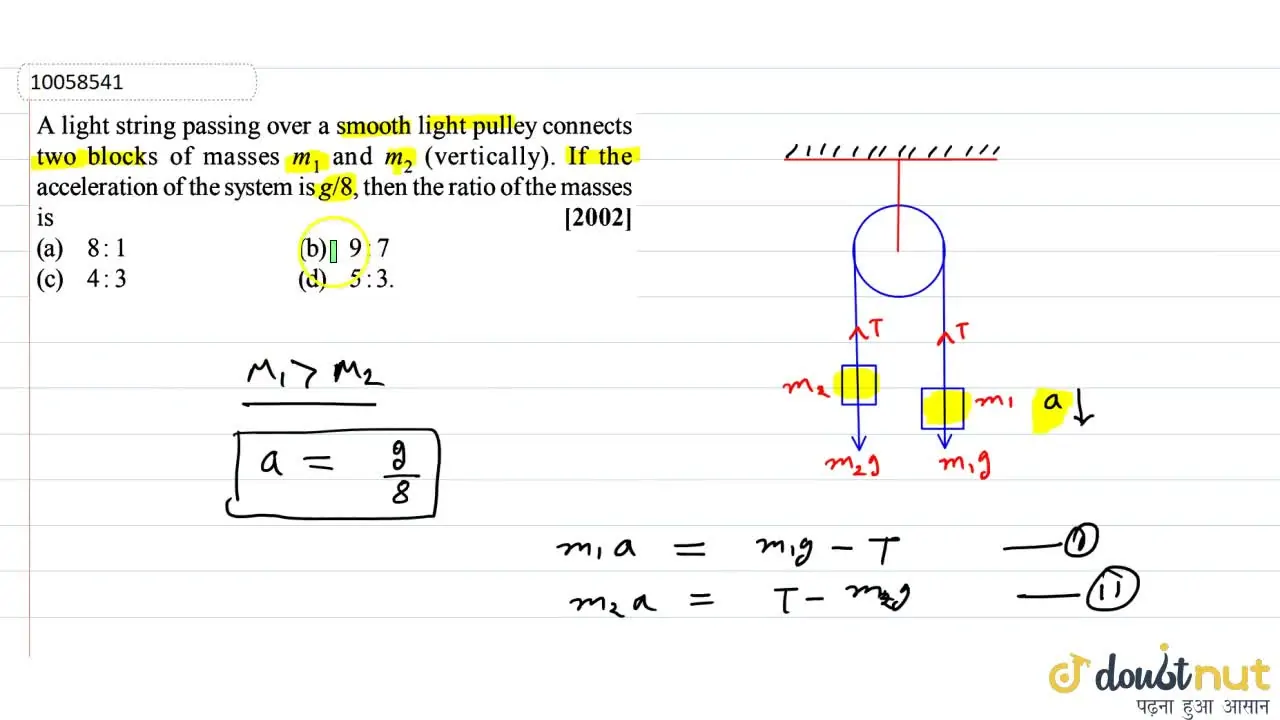 10058541
A light string passing over a smooth light pulley connects
two blocks of masses m₁ and m₂ (vertically). If the
acceleration of the system is g/8, then the ratio of the masses
is [2002]
(a) 8 : 1 (b) 9 : 7
(c) 4 : 3 (d) 5 : 3.
T T
m₂ m₁ a
m₂g m₁g
M₁ > M₂
a = g/8
m₁a = m₁g - T — (i)
m₂a = T - m₂g — (ii)
doubtnut
पढ़ना हुआ आसान